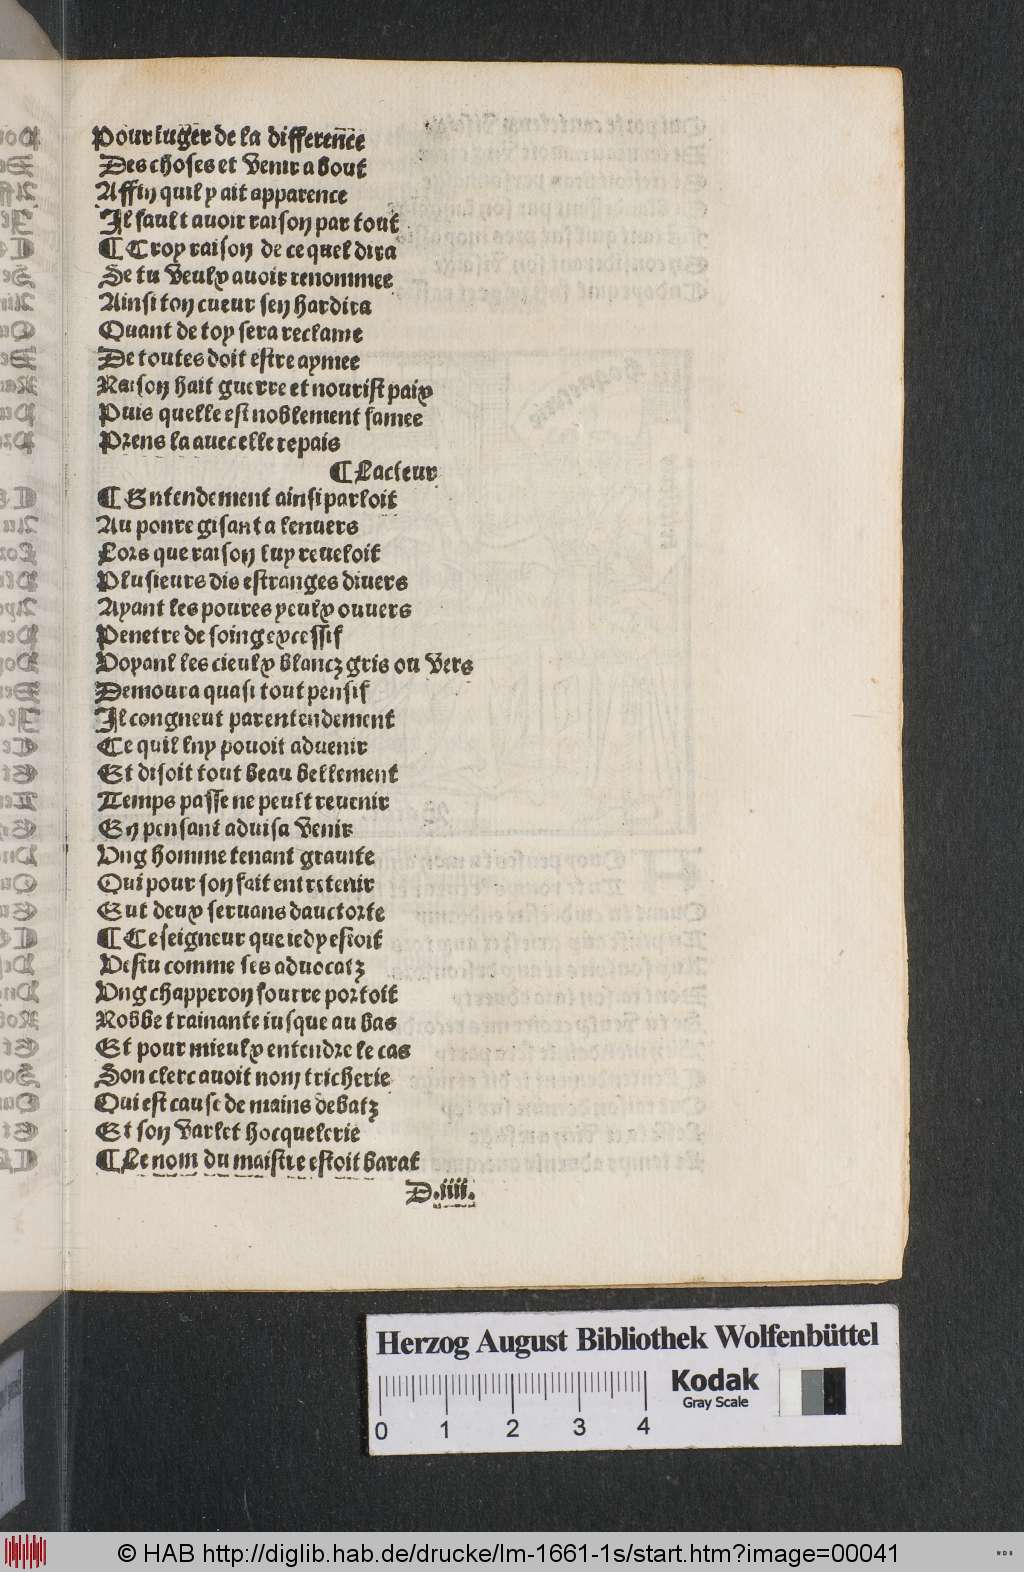 Pour iuger de la difference
Des choses et venir a bout
Affin quil y ait apparence
Il fault auoir raison par tout
¶ Croy raison de ce quel dira
Se tu veulx auoir renommee
Ainsi ton cueur sen hardira
Quant de toy sera reclame
De toutes doit estre aymee
Raison hait guerre et nourist paix
Puis quelle est noblement famee
Prens la auec elle repais
¶ Lacteur
¶ Entendement ainsi parloit
Au poure gisant a lenuers
Lors que raison luy reueloit
Plusieurs dis estranges diuers
Ayant les poures yeulx ouuers
Penetre de soing excessif
Voyant les cieulx blancz gris ou vers
Demoura quasi tout pensif
Il congneut par entendement
Ce quil luy pouoit aduenir
Et disoit tout beau bellement
Temps passe ne peult reuenir
En pensant aduisa venir
Vng homme tenant grauite
Qui pour son fait entretenir
Eut deux seruans dauctorte
¶ Ce seigneur que ie dy estoit
Vestu comme ses aduocatz
Vng chapperon fourre portoit
Robbe trainante iusque au bas
Et pour mieulx entendre le cas
Son clerc auoit nom tricherie
Qui est cause de mains debatz
Et son varlet hocquelerie
¶ Le nom du maistre estoit barat
D.iiii.
Herzog August Bibliothek Wolfenbüttel
Kodak
Gray Scale
0 1 2 3 4
© HAB http://diglib.hab.de/drucke/lm-1661-1s/start.htm?image=00041